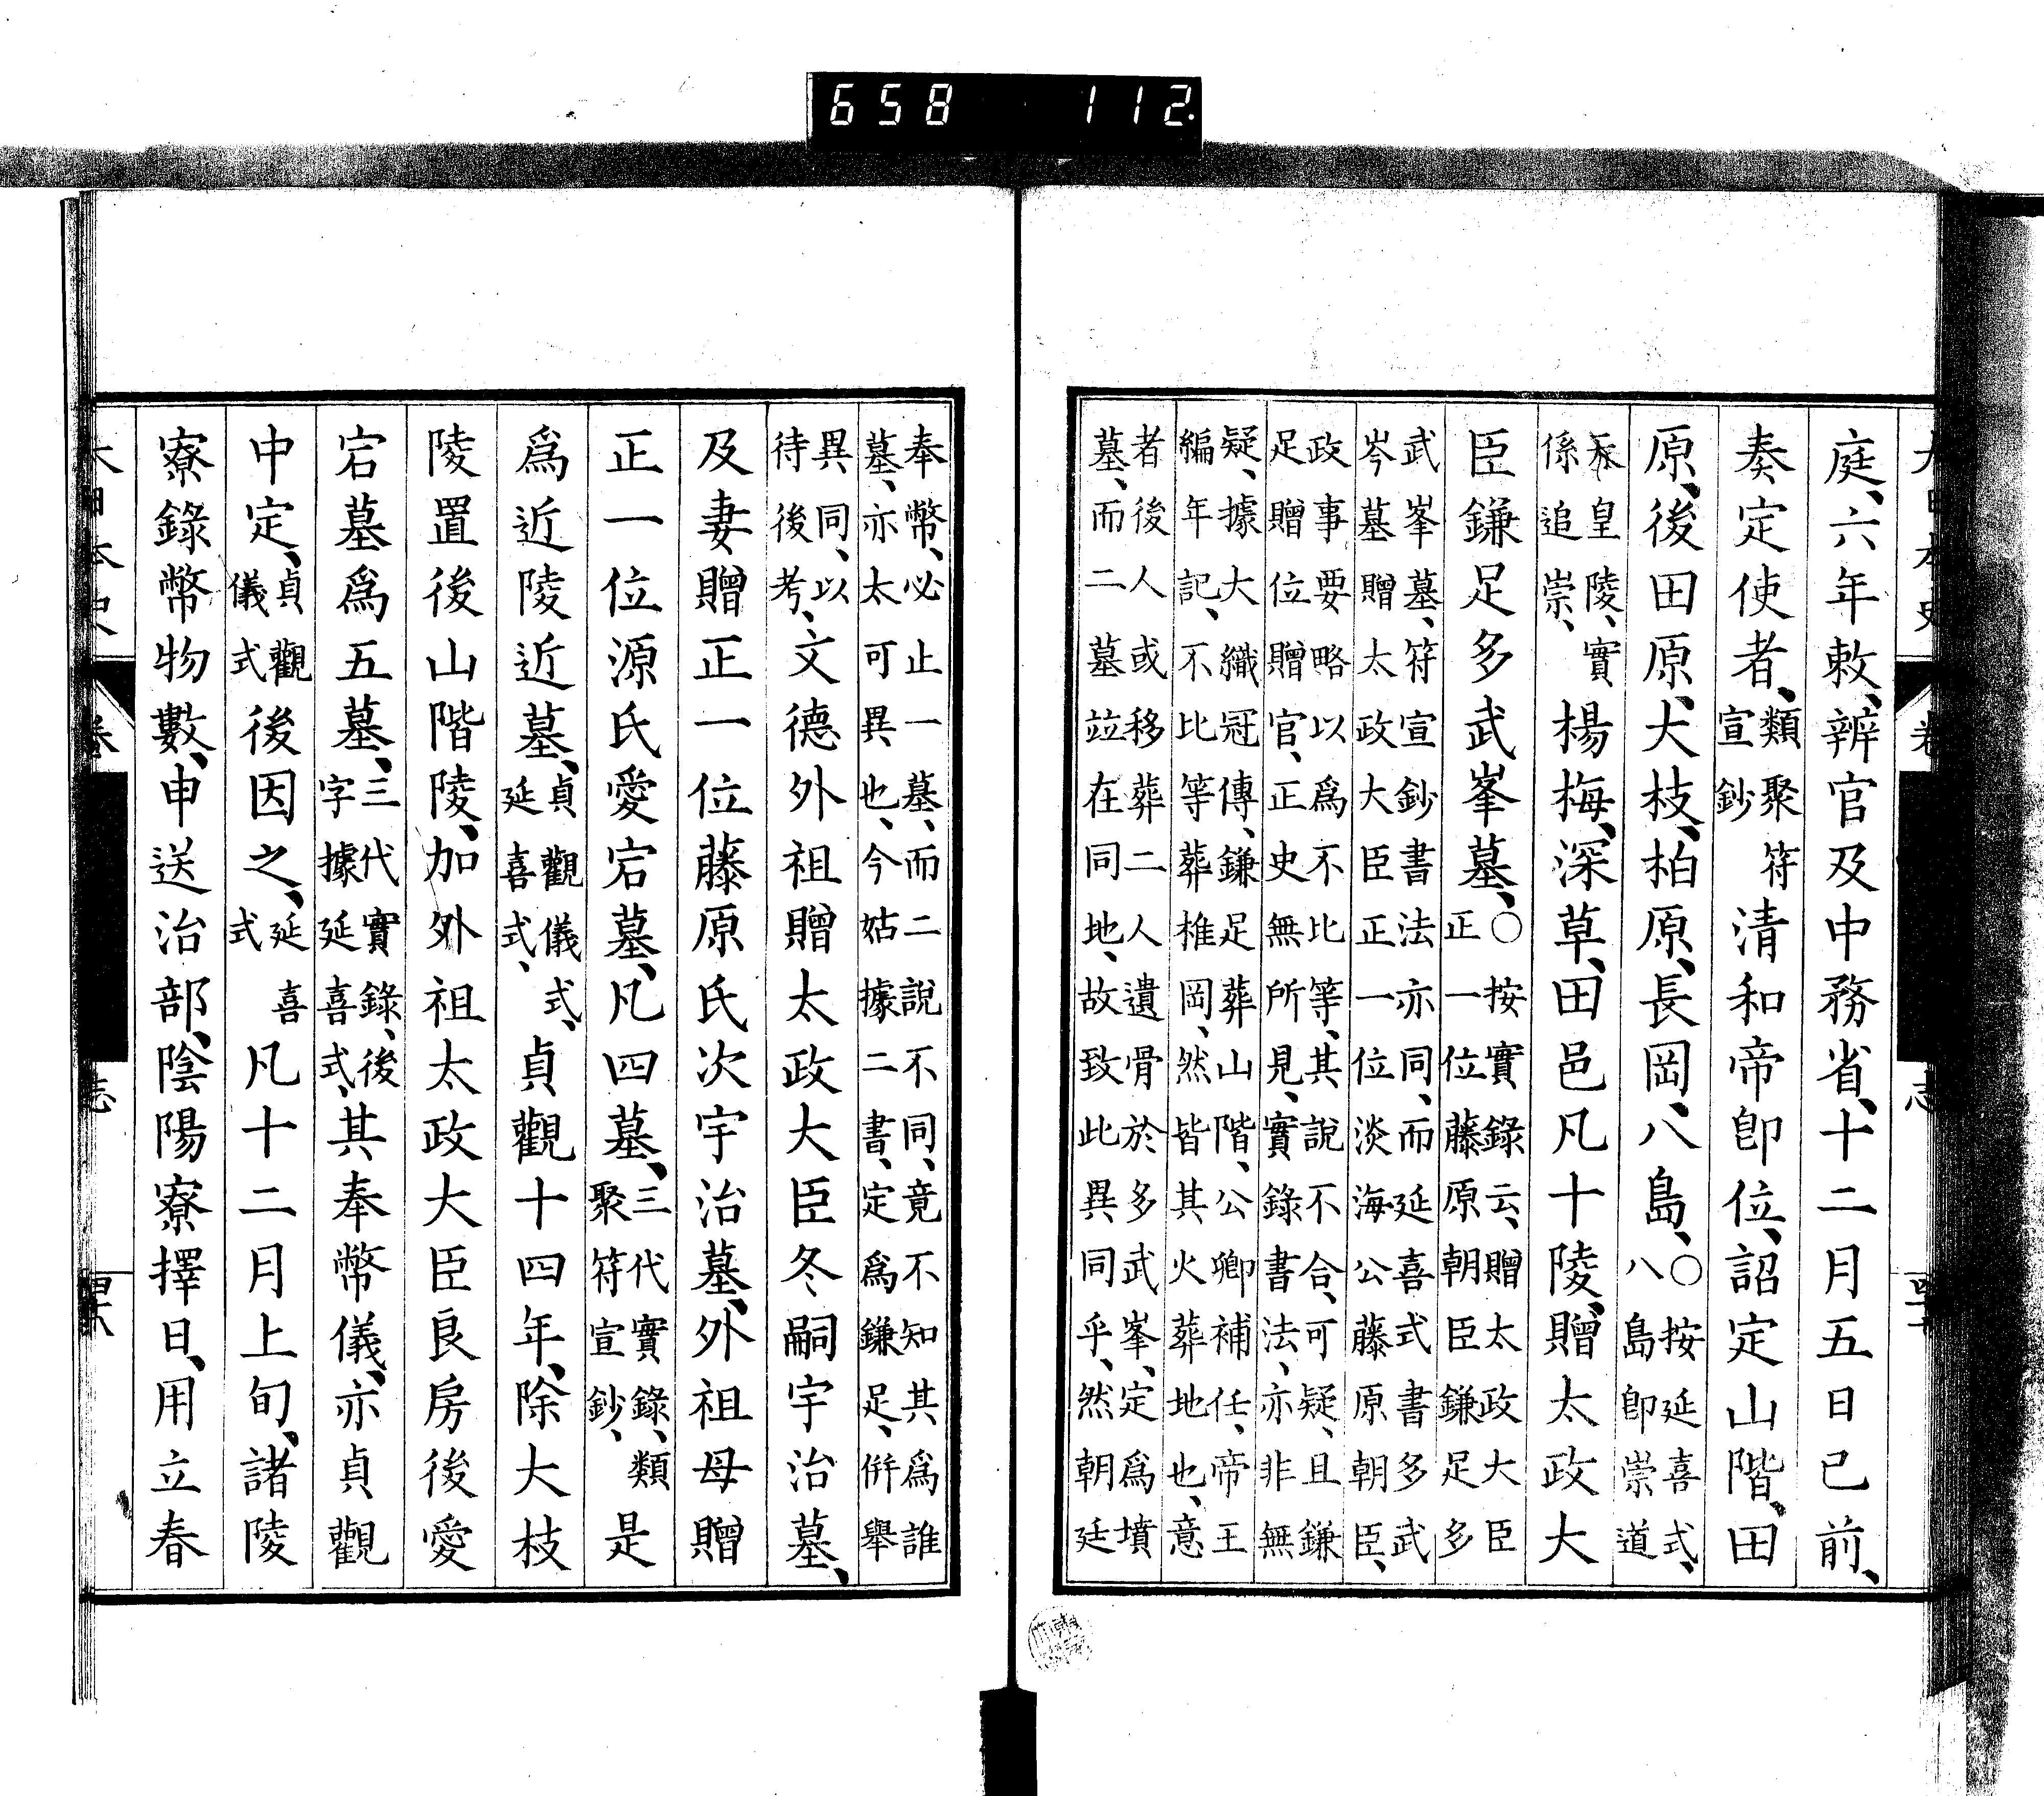 大日本史 卷 志
庭、六年敕、辨官及中務省、十二月五日已前、
奏定使者、類聚符宣鈔清和帝卽位、詔定山階、田
原、後田原、大枝、柏原、長岡、八島、○按延喜式、八島卽崇道
天皇陵、實係追崇、楊梅、深草、田邑凡十陵、贈太政大
臣鎌足多武峯墓、○按實錄云、贈太政大臣正一位藤原朝臣鎌足多
武峯墓、符宣鈔書法亦同、而延喜式書多武
岑墓贈太政大臣正一位淡海公藤原朝臣、
政事要略以爲不比等、其說不合、可疑、且鎌
足贈位贈官、正史無所見、實錄書法、亦非無
疑、據大織冠傳、鎌足葬山階、公卿補任、帝王
編年記、不比等葬椎岡、然皆其火葬地也、意
者後人或移葬二人遺骨於多武峯、定爲墳
墓、而二墓竝在同地、故致此異同乎、然朝廷
奉幣、必止一墓、而二說不同、竟不知其爲誰
墓、亦太可異也、今姑據二書、定爲鎌足、併舉
異同、以待後考、文德外祖贈太政大臣冬嗣宇治墓、
及妻贈正一位藤原氏次宇治墓、外祖母贈
正一位源氏愛宕墓、凡四墓、三代實錄、類聚符宣鈔、是
爲近陵近墓、貞觀儀式、延喜式、貞觀十四年、除大枝
陵置後山階陵、加外祖太政大臣良房後愛
宕墓爲五墓、三代實錄、後字據延喜式、其奉幣儀、亦貞觀
中定、貞觀儀式後因之、延喜式凡十二月上旬、諸陵
寮錄幣物數、申送治部、陰陽寮擇日、用立春
658 112